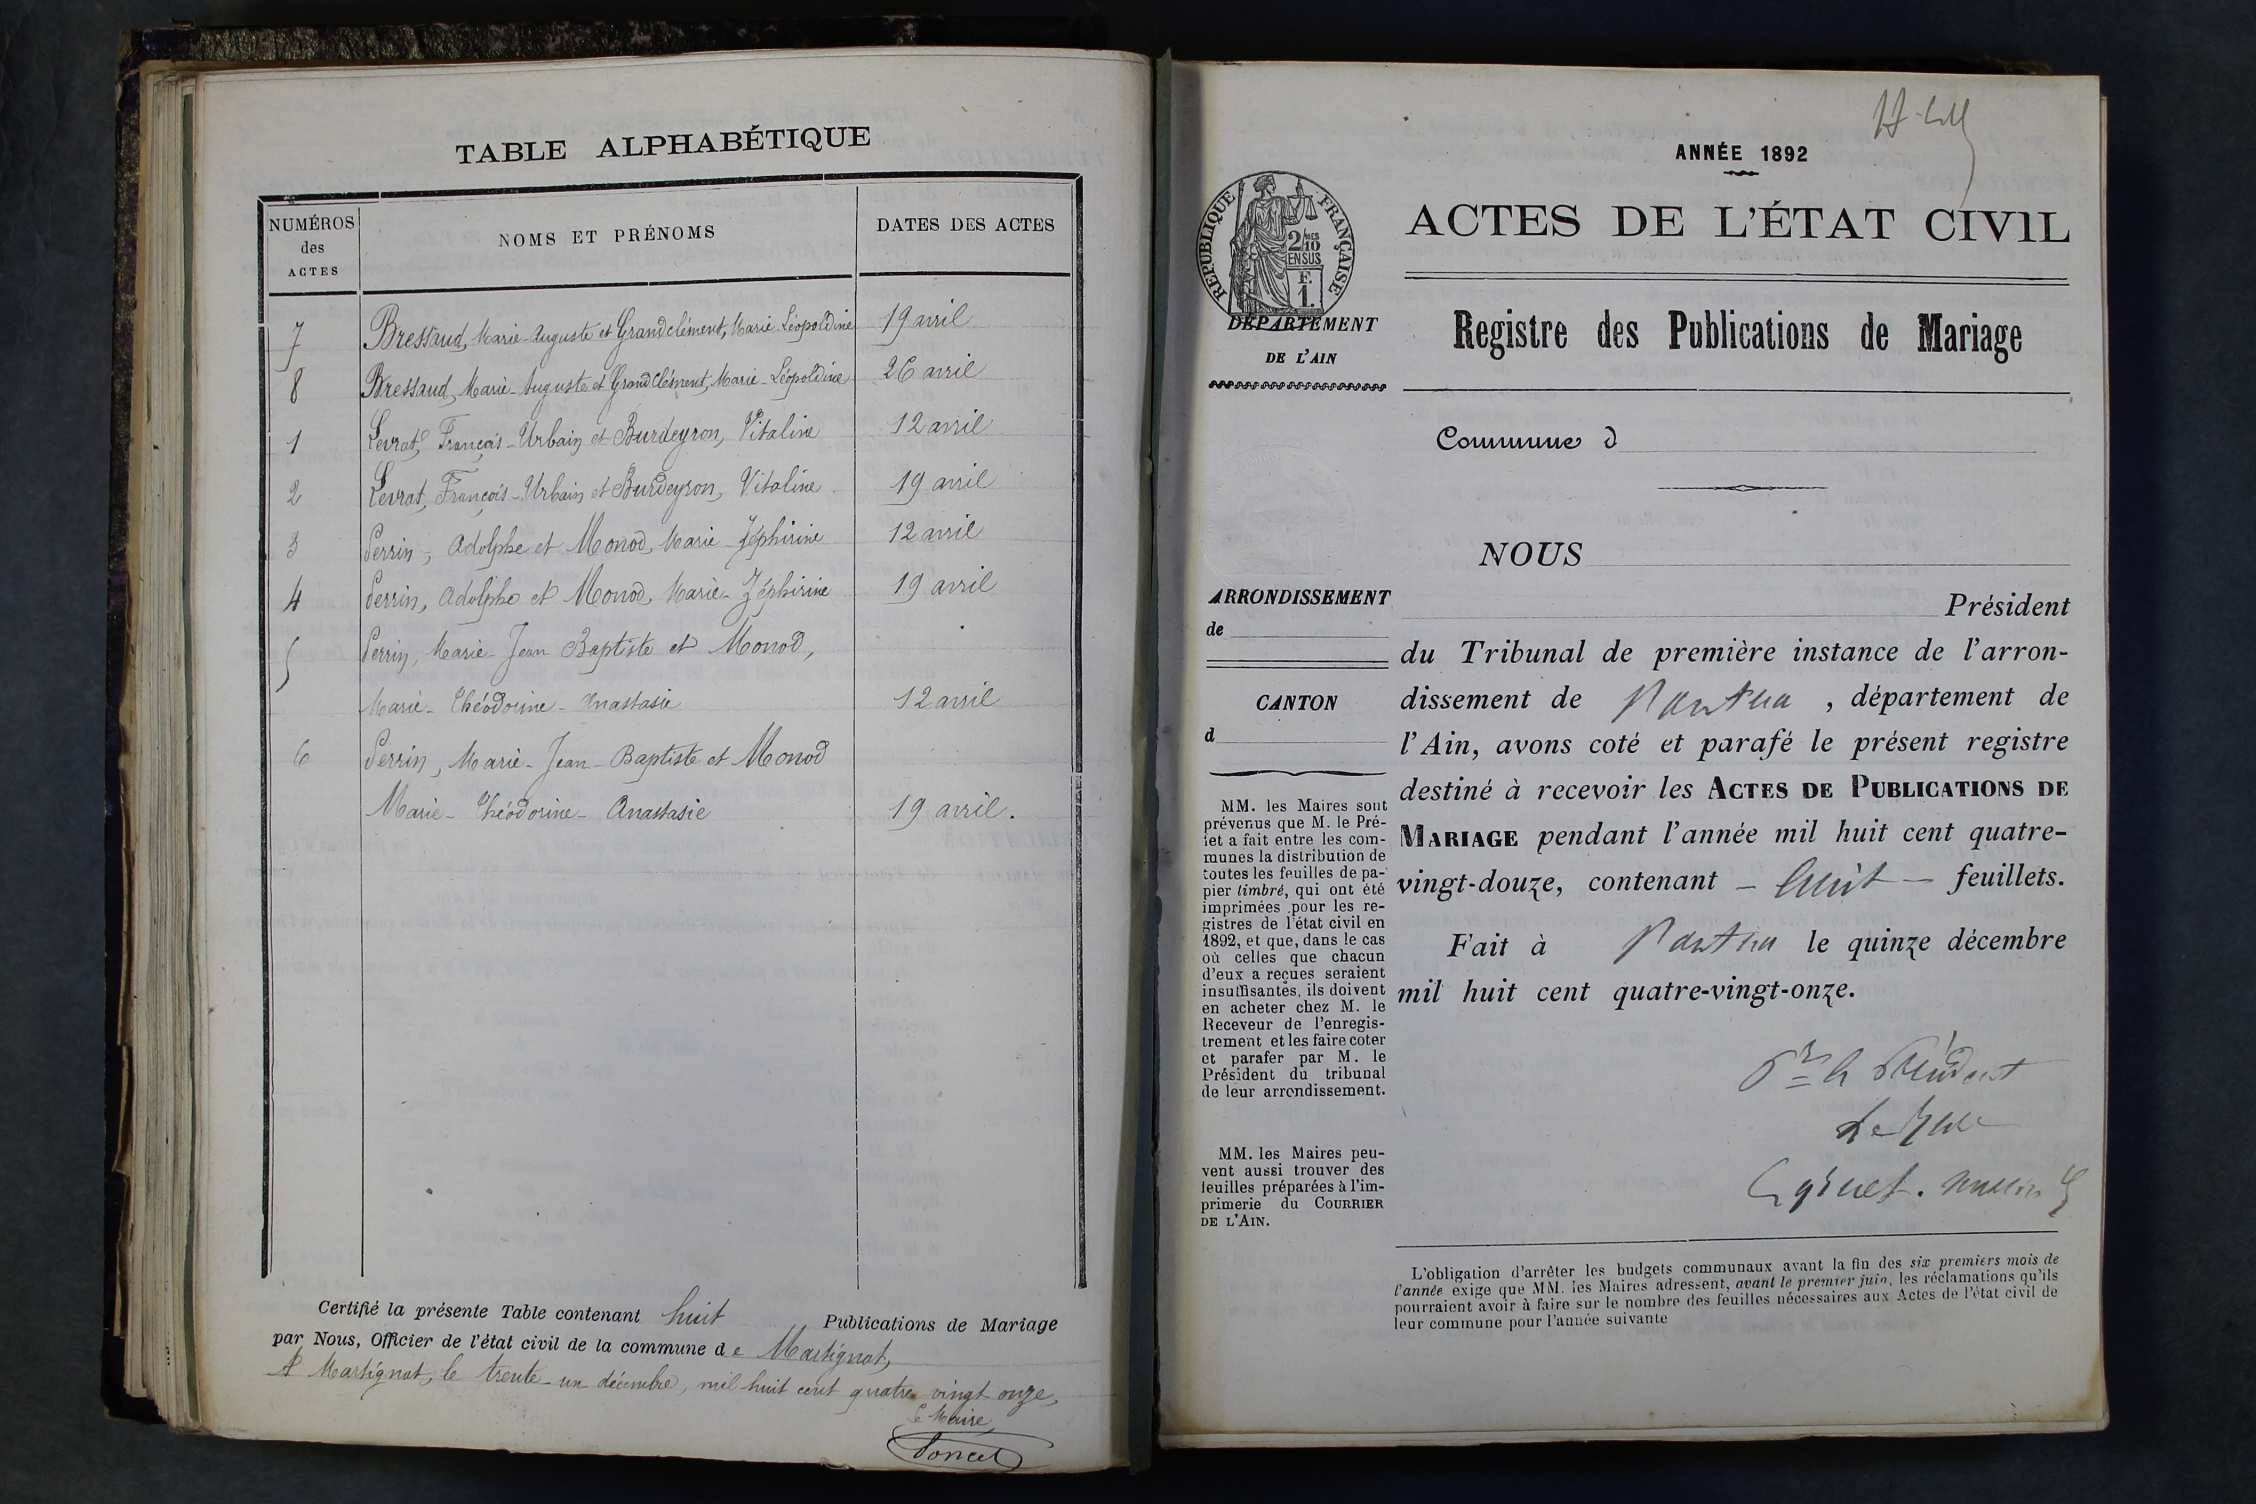 TABLE ALPHABÉTIQUE
NUMÉROS des ACTES
NOMS ET PRÉNOMS
DATES DES ACTES
7 Bressaud, Marie-Auguste et Grandclément, Marie-Léopoldine 19 avril
8 Bressaud, Marie-Auguste et Grandclément, Marie-Léopoldine 26 avril
1 Levrat, François-Urbain et Burdeyron, Vitaline 12 avril
2 Levrat, François-Urbain et Burdeyron, Vitaline 19 avril
3 Perrin, Adolphe et Monod, Marie-Zéphirine 12 avril
4 Perrin, Adolphe et Monod, Marie-Zéphirine 19 avril
5 Perrin, Marie-Jean Baptiste et Monod,
Marie-Théodorine-Anastasie 12 avril
6 Perrin, Marie-Jean-Baptiste et Monod
Marie-Théodorine-Anastasie 19 avril.
Certifié la présente Table contenant huit Publications de Mariage
par Nous, Officier de l'état civil de la commune de Martignat,
A Martignat, le trente-un décembre, mil huit cent quatre-vingt onze,
Le Maire
Poncet
ANNÉE 1892
RÉPUBLIQUE FRANÇAISE
2/10 MES
EN SUS
F.
1.
DÉPARTEMENT
DE L'AIN
ACTES DE L'ÉTAT CIVIL
Registre des Publications de Mariage
Commune d
NOUS
ARRONDISSEMENT
de
CANTON
d
Président
du Tribunal de première instance de l'arron-
dissement de Nantua, département de
l'Ain, avons coté et parafé le présent registre
destiné à recevoir les ACTES DE PUBLICATIONS DE
MARIAGE pendant l'année mil huit cent quatre-
vingt-douze, contenant - huit - feuillets.
Fait à Nantua le quinze décembre
mil huit cent quatre-vingt-onze.
Pr le Président
Le Juge
MM. les Maires sont
prévenus que M. le Pré-
fet a fait entre les com-
munes la distribution de
toutes les feuilles de pa-
pier timbré, qui ont été
imprimées pour les re-
gistres de l'état civil en
1892, et que, dans le cas
où celles que chacun
d'eux a reçues seraient
insuffisantes, ils doivent
en acheter chez M. le
Receveur de l'enregis-
trement et les faire coter
et parafer par M. le
Président du tribunal
de leur arrondissement.
MM. les Maires peu-
vent aussi trouver des
feuilles préparées à l'im-
primerie du COURRIER
DE L'AIN.
L'obligation d'arrêter les budgets communaux avant la fin des six premiers mois de
l'année exige que MM. les Maires adressent, avant le premier juin, les réclamations qu'ils
pourraient avoir à faire sur le nombre des feuilles nécessaires aux Actes de l'état civil de
leur commune pour l'année suivante